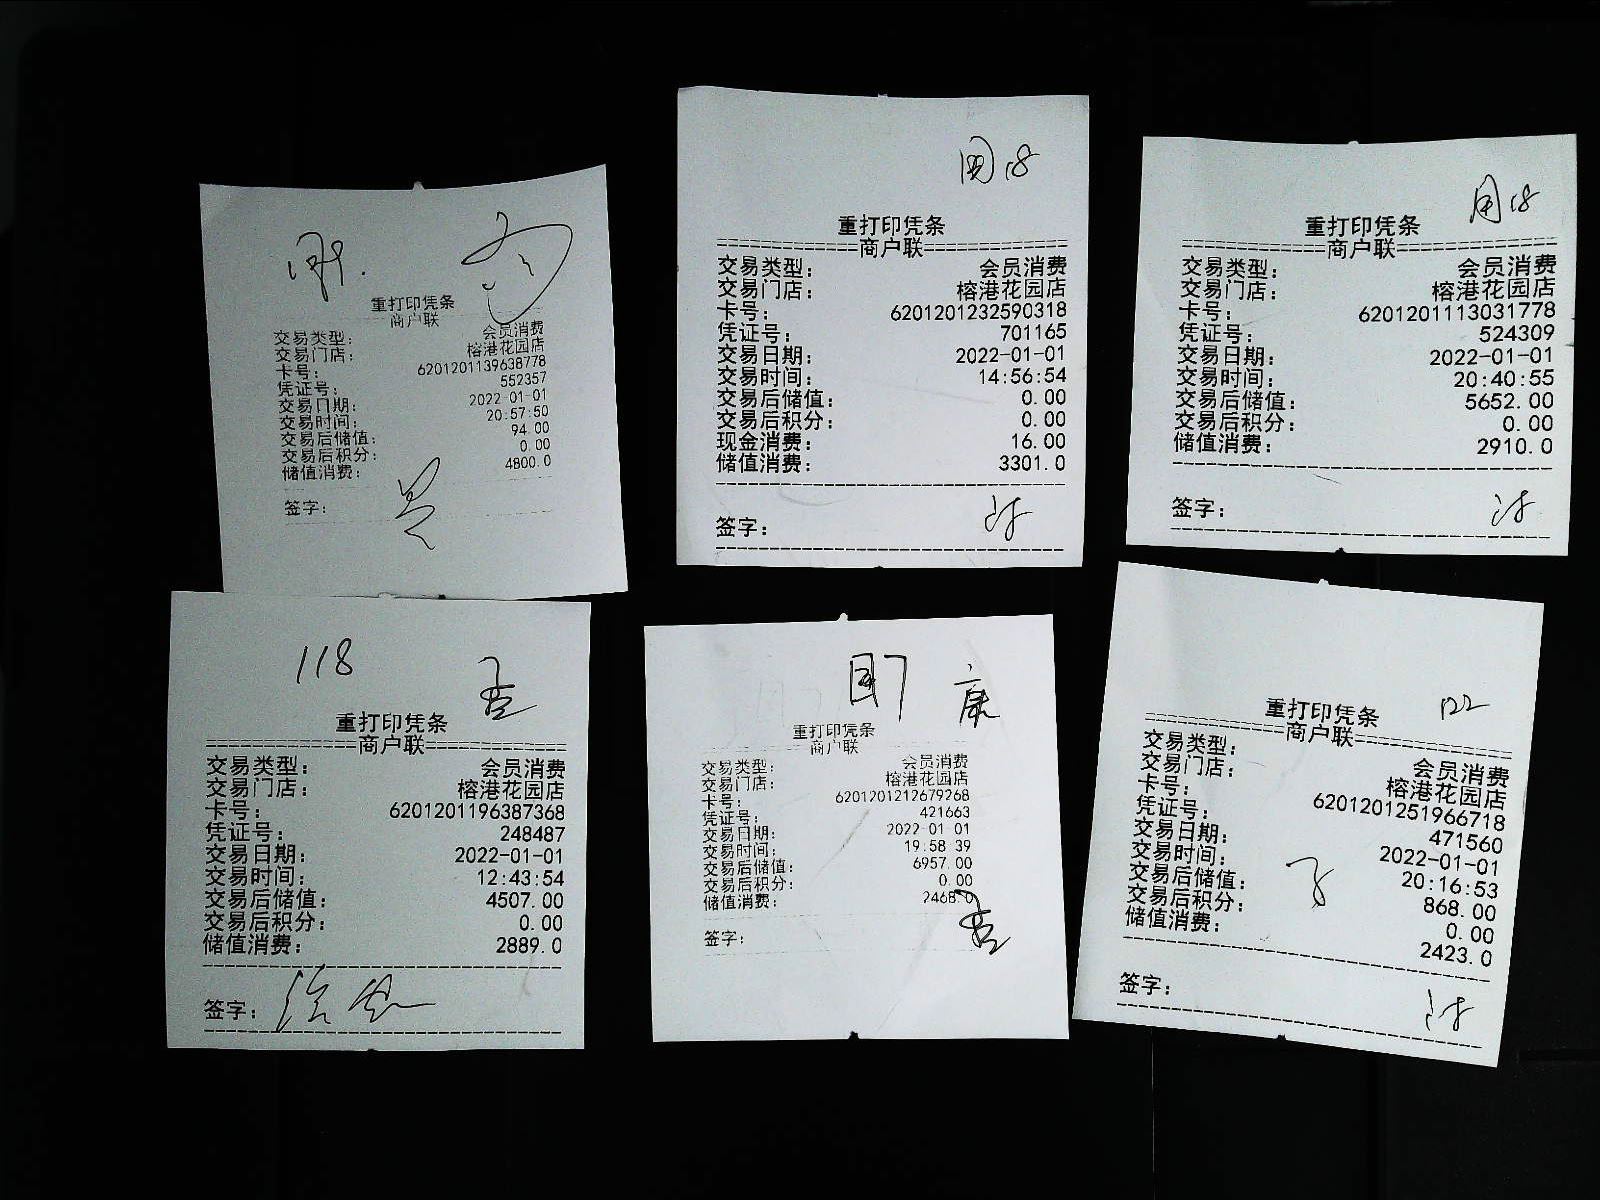 重打印凭条
商户联
交易类型： 会员消费
交易门店： 榕港花园店
卡号： 6201201139638778
凭证号： 552357
交易日期： 2022-01-01
交易时间： 20:57:50
交易后储值： 94.00
交易后积分： 0.00
储值消费： 4800.0
签字：
国18
重打印凭条
商户联
交易类型： 会员消费
交易门店： 榕港花园店
卡号： 6201201232590318
凭证号： 701165
交易日期： 2022-01-01
交易时间： 14:56:54
交易后储值： 0.00
交易后积分： 0.00
现金消费： 16.00
储值消费： 3301.0
签字：
重打印凭条
商户联
交易类型： 会员消费
交易门店： 榕港花园店
卡号： 6201201113031778
凭证号： 524309
交易日期： 2022-01-01
交易时间： 20:40:55
交易后储值： 5652.00
交易后积分： 0.00
储值消费： 2910.0
签字：
118
重打印凭条
商户联
交易类型： 会员消费
交易门店： 榕港花园店
卡号： 6201201196387368
凭证号： 248487
交易日期： 2022-01-01
交易时间： 12:43:54
交易后储值： 4507.00
交易后积分： 0.00
储值消费： 2889.0
签字：
国7 康
重打印凭条
商户联
交易类型： 会员消费
交易门店： 榕港花园店
卡号： 6201201212679268
凭证号： 421663
交易日期： 2022-01-01
交易时间： 19:58:39
交易后储值： 6957.00
交易后积分： 0.00
储值消费： 2468.0
签字：
122
重打印凭条
商户联
交易类型： 会员消费
交易门店： 榕港花园店
卡号： 6201201251966718
凭证号： 471560
交易日期： 2022-01-01
交易时间： 20:16:53
交易后储值： 868.00
交易后积分： 0.00
储值消费： 2423.0
签字：